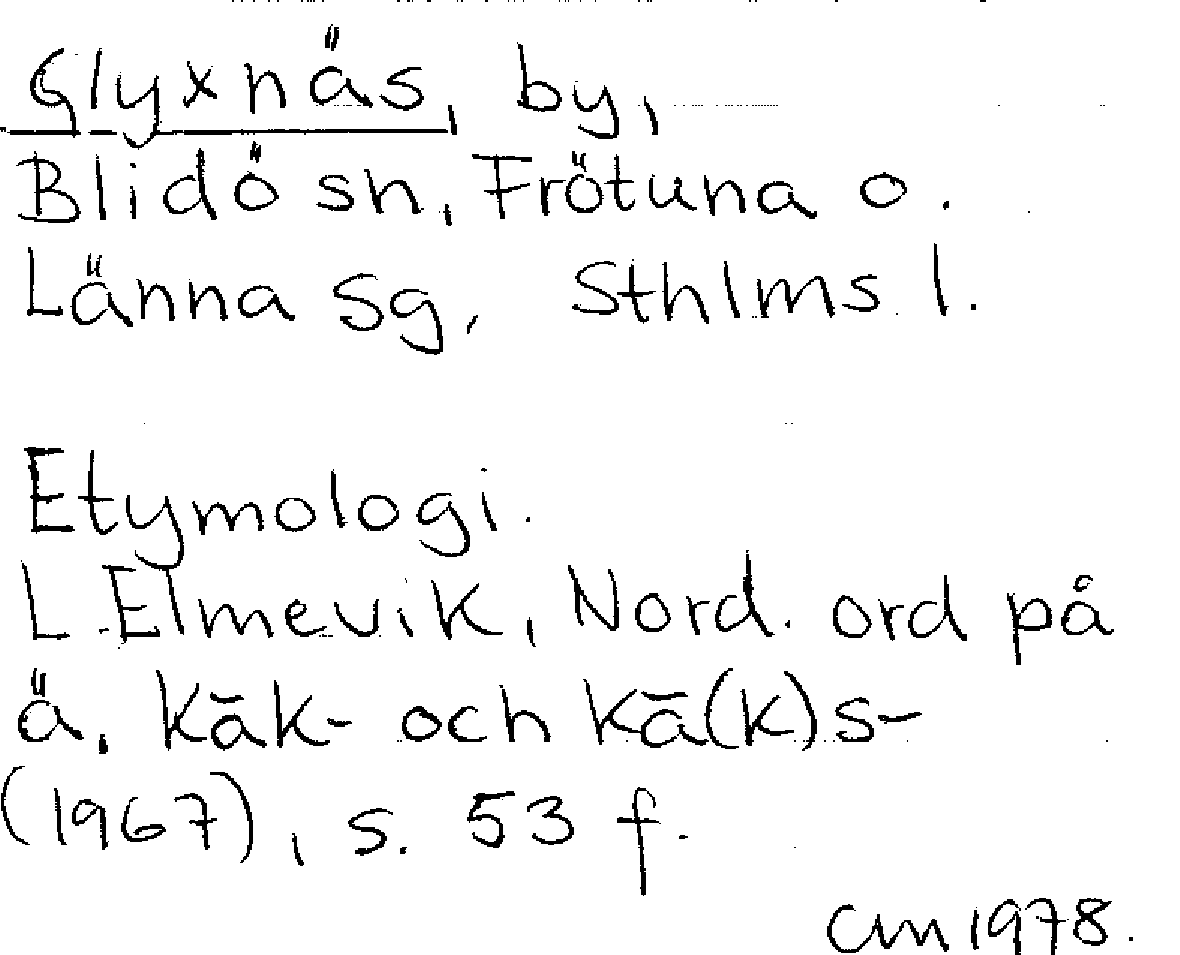 Glyxnäs, by,
Blidö sn, Frötuna o.
Länna sg, Sthlms l.
Etymologi.
L. Elmevik, Nord. ord på
ä. kāk- och kā(k)s-
(1967), s. 53 f.
CM 1978.